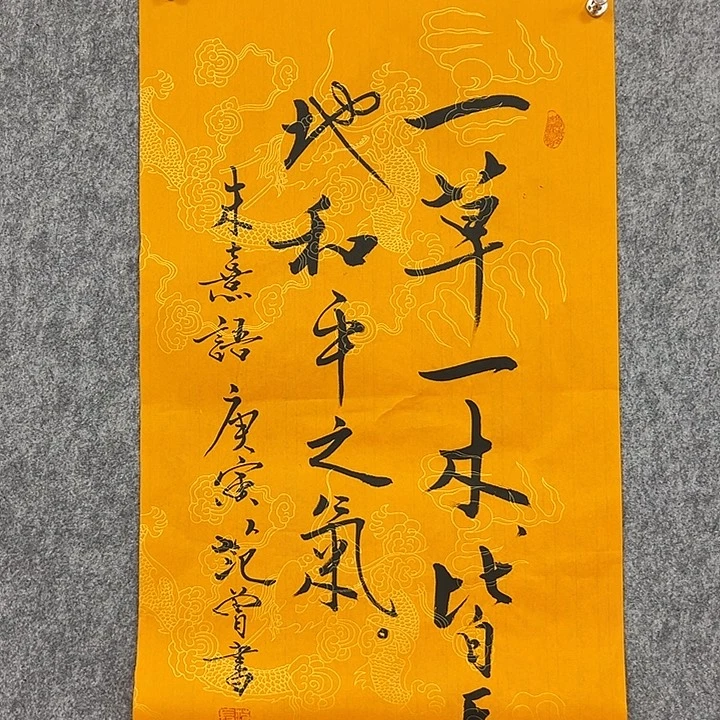 一草一木、皆
地和平之氣。
朱熹語 庚寅 范曾書